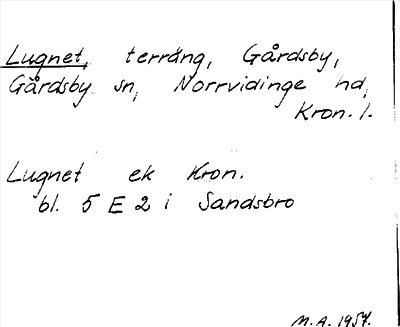 Lugnet, terräng, Gårdsby,
Gårdsby sn, Norrvidinge hd,
Kron. l.
Lugnet ek Kron.
bl. 5 E 2 i Sandsbro
M.A. 1957.